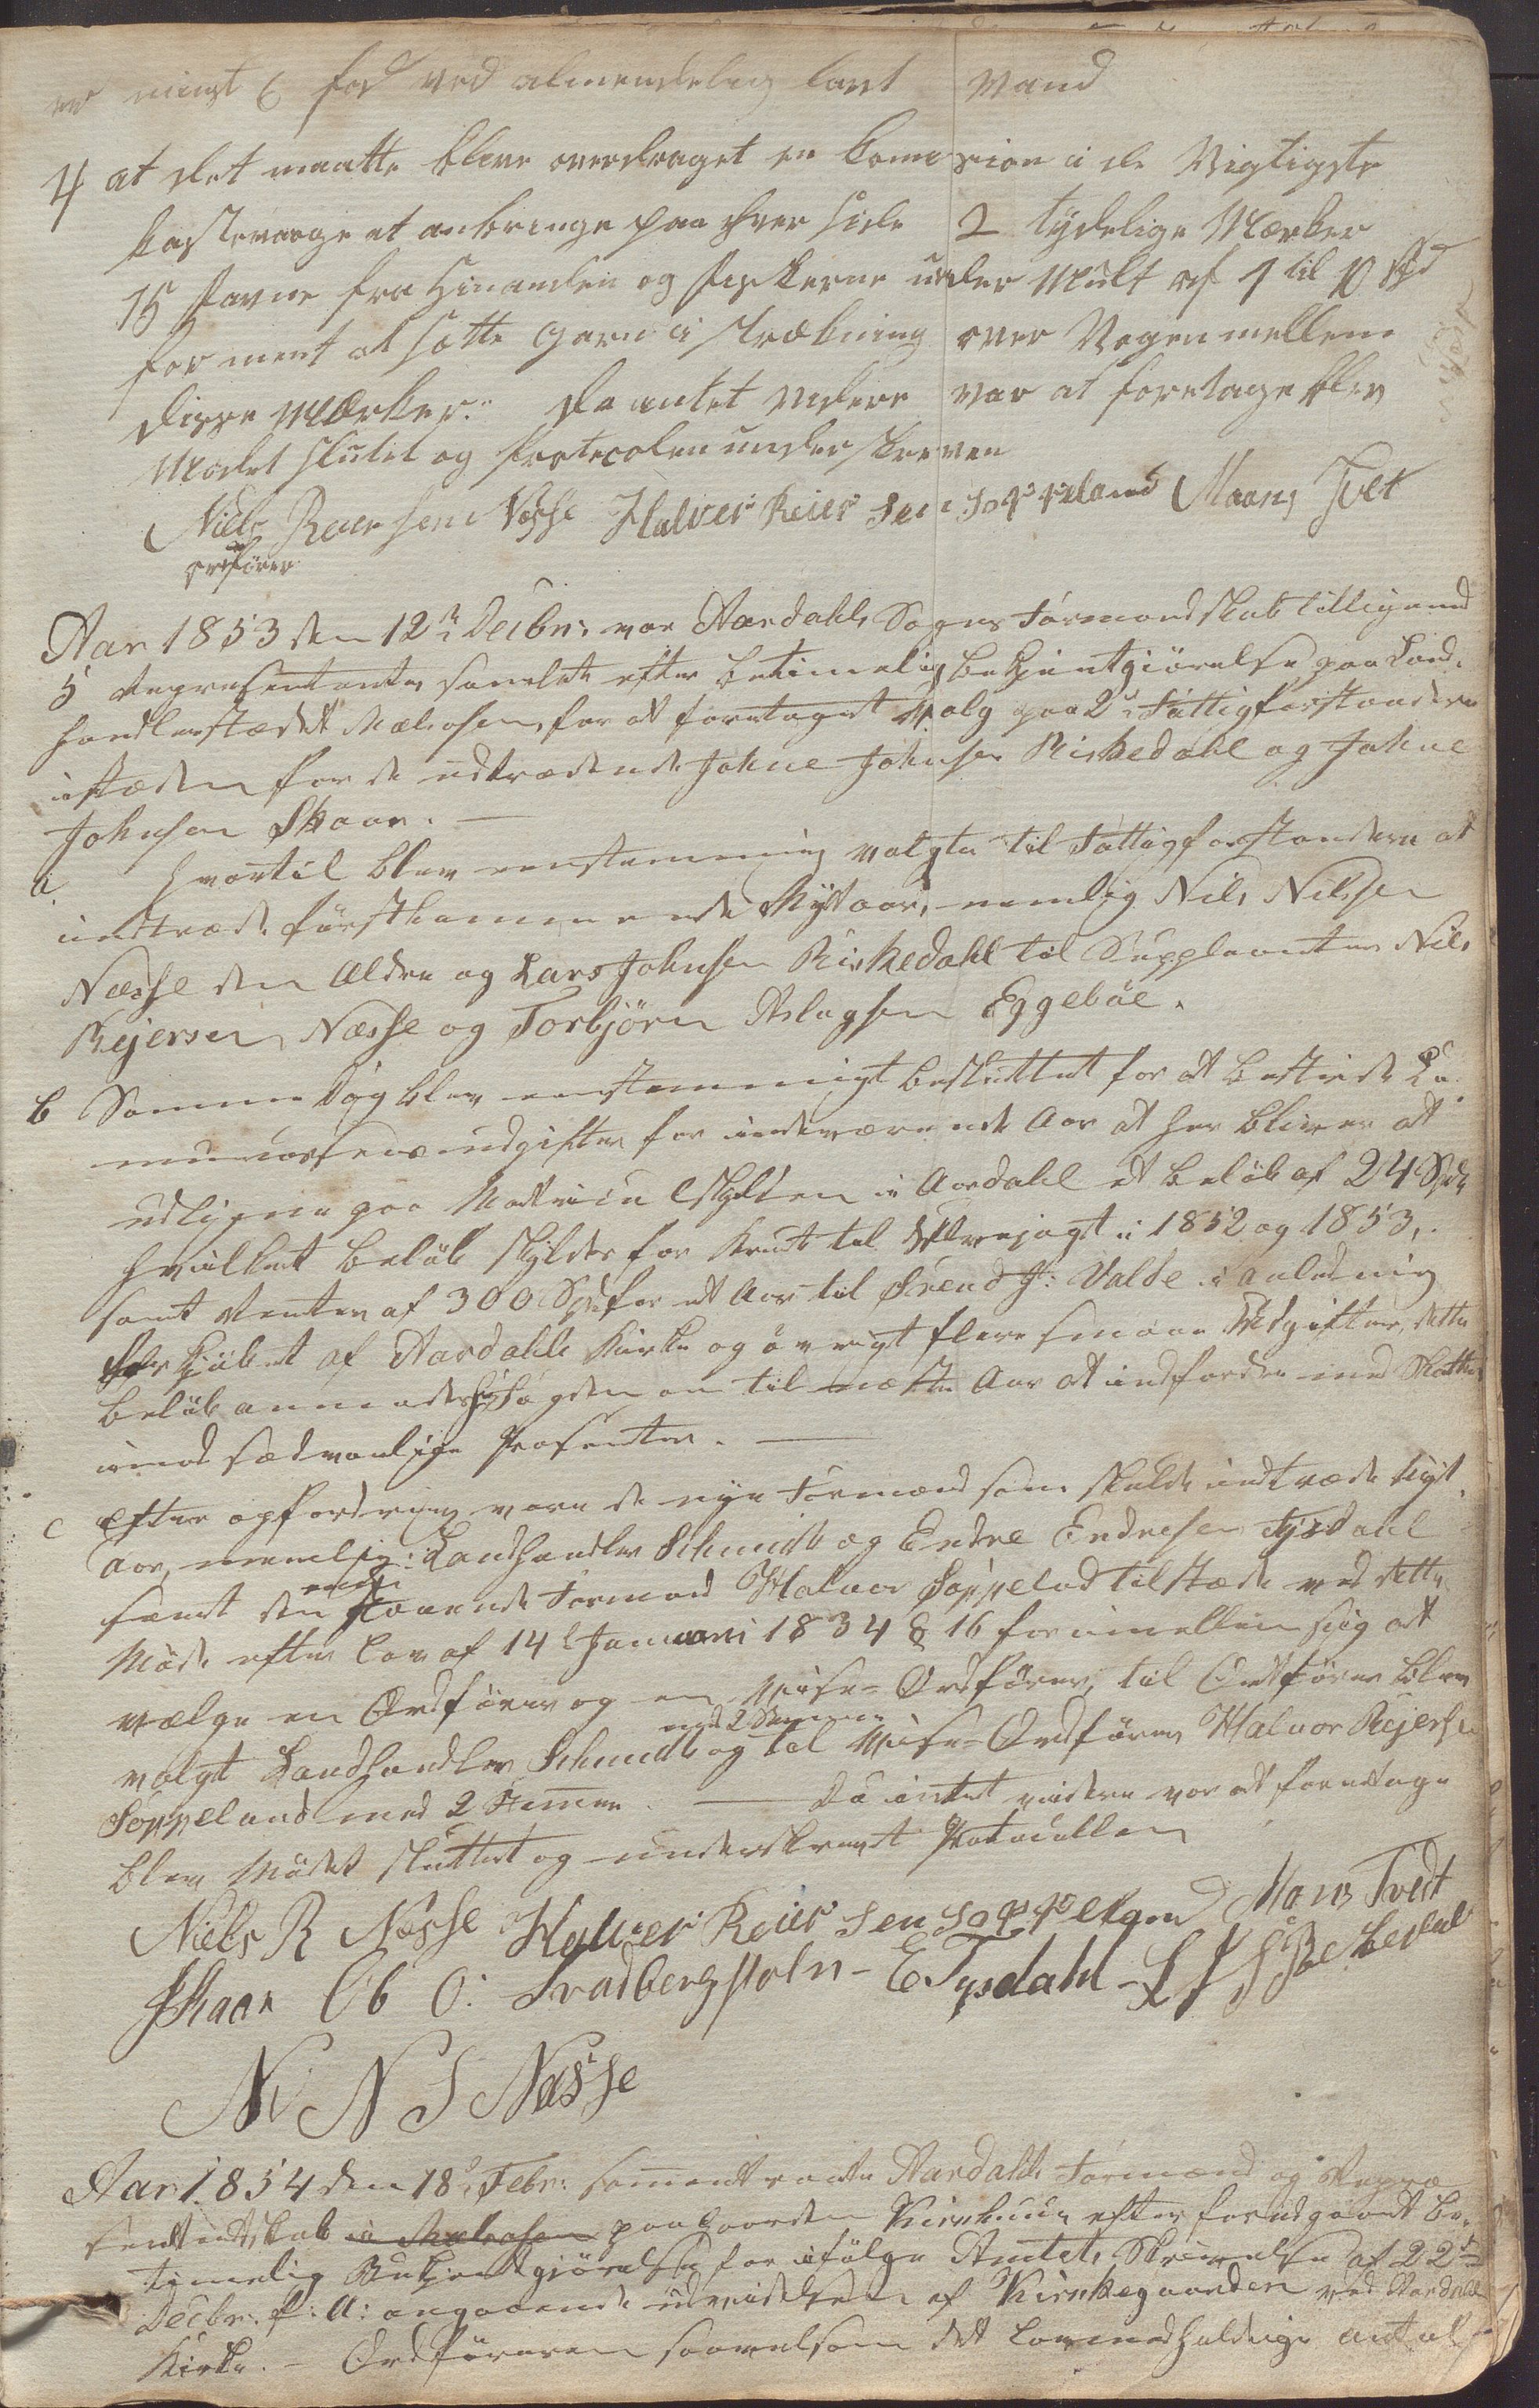 er minst 6 fod ved almendelig lavt vand
4 at det maatte blive overdraget en Comesion i de Vigtigste
Kastevaage at anbringe paa hver side 2 tydelige Mærker
15 favne fra hinanden og fiskerne under Mult af 1 til 10 Spd
forment at sætte Garn i strækning over Vogen mellem
disse Mærker. da intet videre var at foretage blev
Mødet slutet og Protocolen underskreven
Niels Reiersen Næsse Halver Reiersen Soppeland Maans Tvet
ordfører
Aar 1853 den 12te Decbr: var Aardahls Sogns Formandskab tilligemed
5 Representanter samlede efter betimelig bekjentgiörelse paa Land-
handlerstædet Mælsosen, for at foretaget Valg paa 2de Fattigforstandere
istæden for de udtrædende Johne Johnsen Riskedahl og Johne
Johnsen Skaar.
a. hvortil blev eenstemmig valgte til Fattigforstandere at
indtræde förstkommende Nytaar, nemlig Nils Nilssen
Næsse den Ældre og Lars Johnsen Riskedahl til Suppleanter Nils
Rejersen Næsse og Torbjörn Aslagsen Eggebøe.
b Samme Dag blev eenstemmigt besluttet for at bestride Co-
munevæsenudgifter for indeværende Aar at her bliver at
udligne paa Matriculskylden i Aardahl et beløb af 24 Spd
hvilket beløb skyldes for Krudt til Ulvejagt i 1852 og 1853,
samt Renter af 300 Spd for et Aar til Svend J: Valde i anledning
kjöbet af Aardahls Kirke og övrigt flere smaae Udgifter, dette
beløb anmodes Fogden om til næste Aar at indfordre med Skatten
imod sædvanlige Prosenter.
c Efter opfordring vare de nye Formænd som skulde indtræde Nyt-
aar, nemlig: Landhandler Schmidt og Endre Endresen Tysdahl
samt den staaende Formand Halvor Soppelad tilstæde ved dette
Møde efter Lov af 14de Januari 1834 § 16 for imellem sig at
vælge en Ordförer og en Vise-Ordförer, til Ordförer blev
valgt Landhandler Schmidt med 2 Stemmer og til Vise-Ordförer Halvor Rejersen
Soppeland med 2 Stemmer. Da intet videre var at foretage
blev Mödet sluttet og underskrevet Protocollen
Niels R Næsse Halver Reiersen Soppeland Mons Tvedt
J Skaar Ob O: Svadberg Holm - E Tysdahl -
N N S Næsse
Aar 1854 den 18de Febr: sammentraadte Aardahls Formænd og Repræ-
sentantskab i Mælsosen paa Gaarden Kirkhuus efter foregaaende be-
timelig Bekjendtgiörelse for ifölge Amtets Skrivelse af 22de
Decbr. f: A: angaaende udvidelsen af Kirkegaarden ved Aardahls
Kirke. - Ordföreren saavelsom det lovmedholdige antal